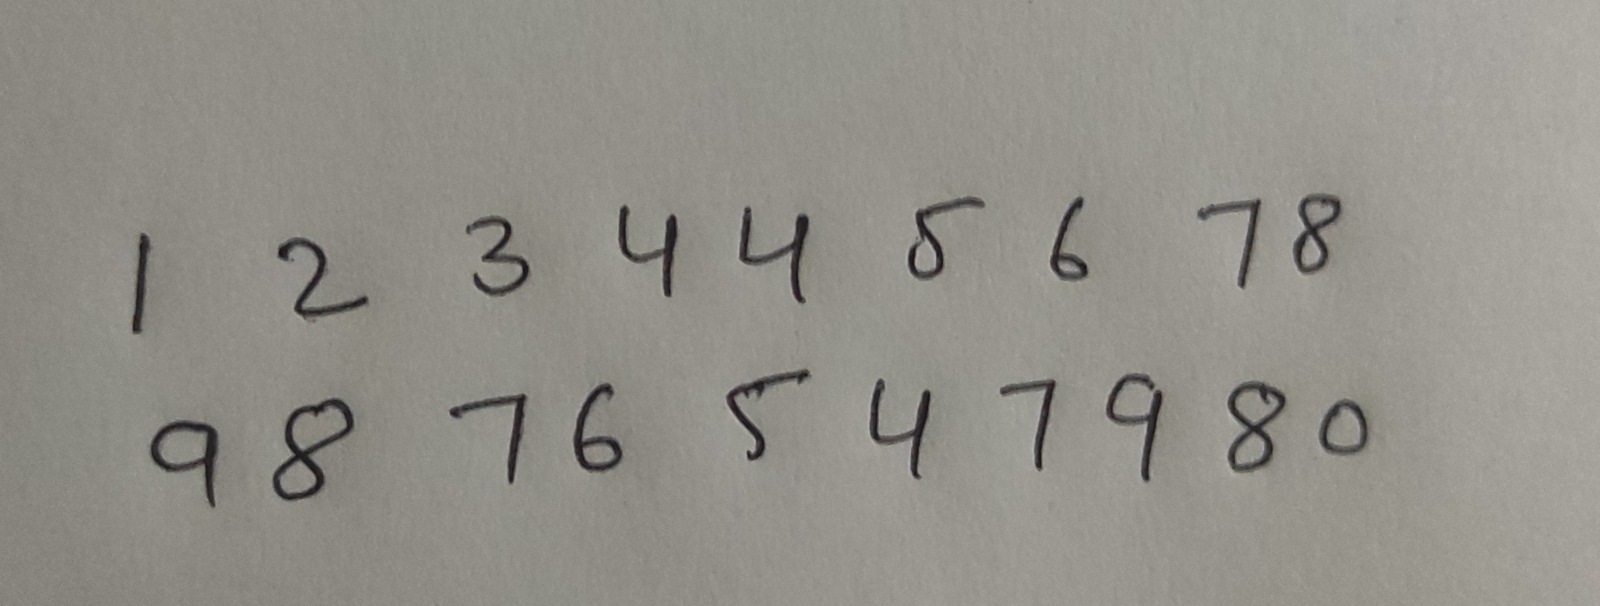 1 2 3 4 4 5 6 7 8
9 8 7 6 5 4 7 9 8 0